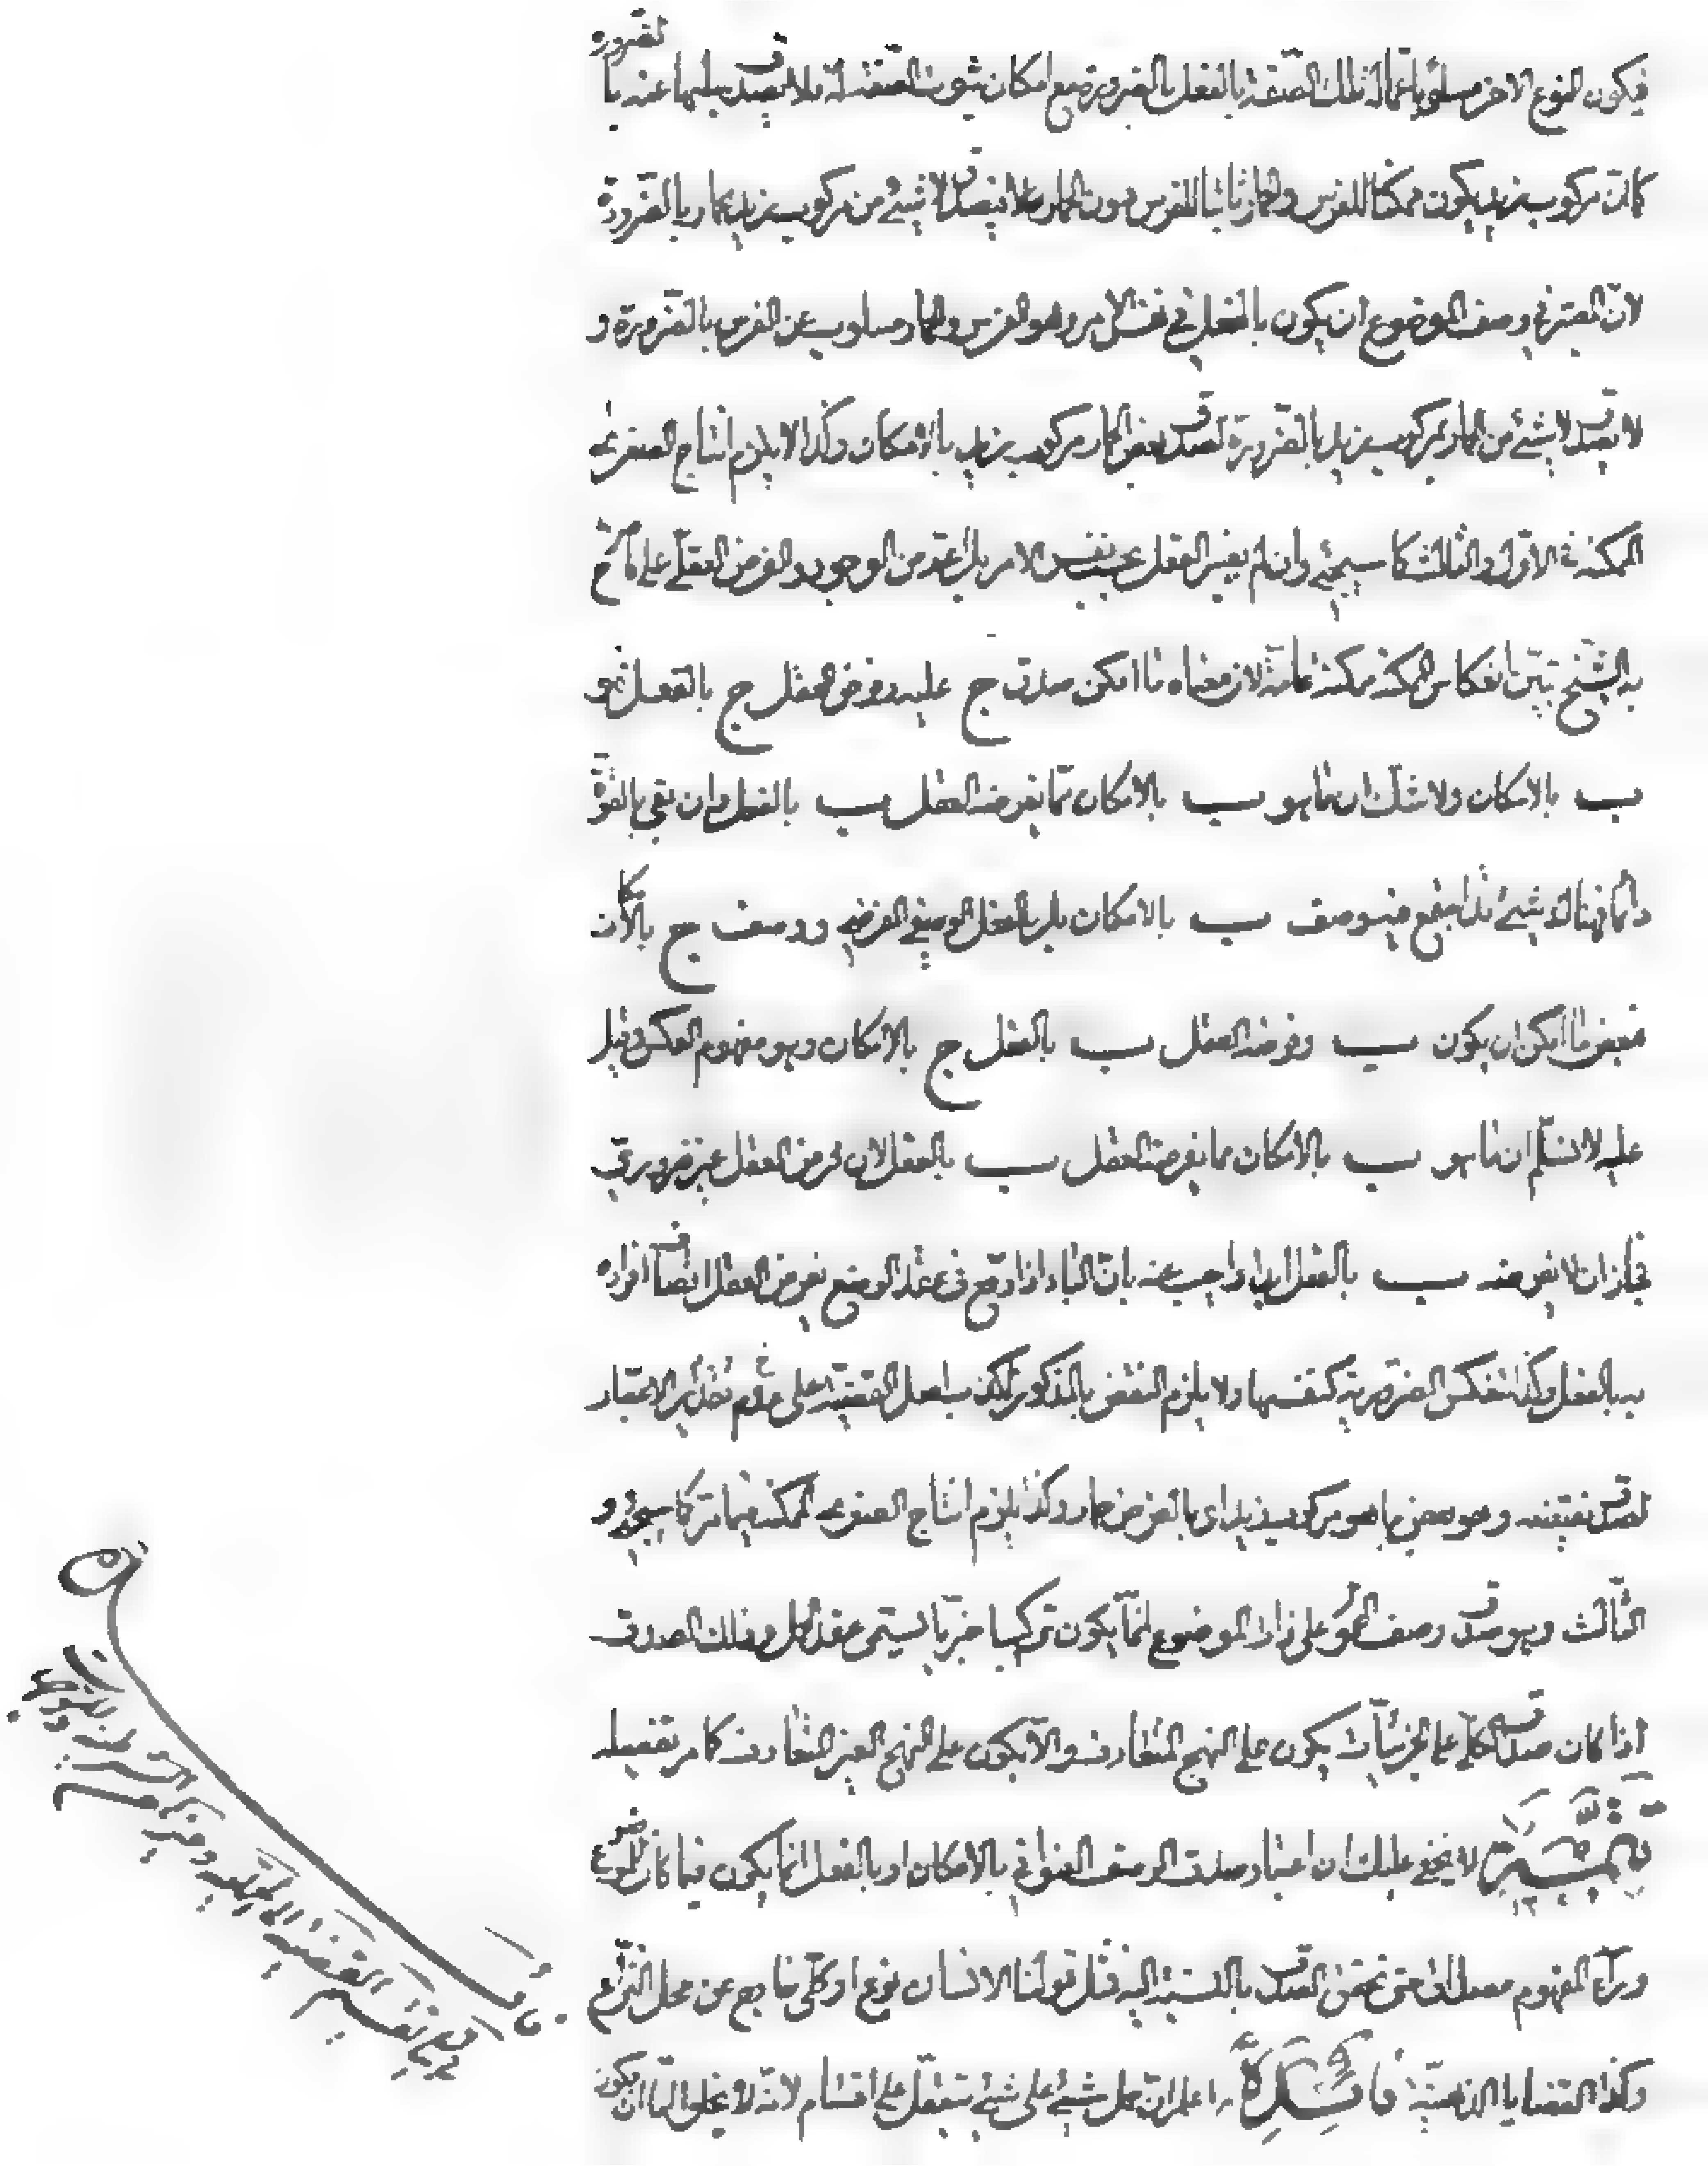 فيكون النوع الاخر مسلوبا عما له تلك الصفة بالفعل بالضرورة مع امكان ثبوت الصفة له فلا يصدق سلبها عنه بالضرورة
كما ان مركوب زيد يكون ممكنا للفرس والحمار ثابتا للفرس دون الحمار فلا يصدق لا شيئ من مركوب زيد بحمار بالضرورة
لان المعتبر في وصف الموضوع ان يكون بالفعل في نفس الامر وهو الفرس والحمار مسلوب عن الفرس بالضرورة و
لا يصدق لا شيئ من الحمار بمركوب زيد بالضرورة لصدق بعض الحمار مركوب زيد بالامكان وكذا لا يلزم انتاج الصغرى
الممكنة في الاول والثالث كما سيجيئ وان لم يعتبر الفعل بحسب نفس الامر بل اعم من الوجود والفرض العقلي على ما صرح
به الشيخ تبين انعكاس الممكنة ممكنة عامة لان معناه ما امكن صدق ج عليه وفرض العقل ج بالفعل فهو
ب بالامكان ولا شك ان ما هو ب بالامكان مما يفرضه العقل ب بالفعل وان بقي بالقوة
دائما فهناك شيئ بذا يقع فيه وصف ب بالامكان بل بالفعل الوضعي الفرضي ووصف ج بالامكان
فبعض ما امكن ان يكون ب وفرضه العقل ب بالفعل ج بالامكان وهو مفهوم العكس وقيل
عليه لا نسلم ان ما هو ب بالامكان مما يفرضه العقل ب بالفعل لان فرض العقل غير ضروري
فجاز ان لا يفرضه ب بالفعل ابدا واجيب عنه بان الباء اذا وقع في عقد الوضع يفرض العقل اتصاف افراده
به بالفعل وكذا تنعكس الضرورية كنفسها ولا يلزم النقض بالمذكور لكذب اصل القضية على تقدير الاعتبار
لصدق نقيضه وهو بعض ما هو مركوب زيد اي بالفرض حمار وكذا يلزم انتاج الصغرى الممكنة فيما مر كما سيجيئ و
الثالث وهو صدق وصف المحمول على ذات الموضوع انما يكون تركيبا خبريا يسمى عقد الحمل وذلك الصدق
اذا كان صدق الكلي على الجزئيات يكون على النهج المتعارف والا يكون على النهج الغير المتعارف كما مر تفصيله
تبصرة لا يخفى عليك ان اعتبار صدق الوصف العنواني بالامكان او بالفعل انما يكون فيما كان للموضوع
وراء المفهوم مصداق حتى تحقق الصدق بالنسبة اليه فمثل قولنا الانسان نوع او كلي خارج عن محل النزاع
وكذا القضايا الذهنية فائدة اعلم ان حمل شيئ على شيئ يتعقل على اقسام لانه لا يخلو اما ان يكون